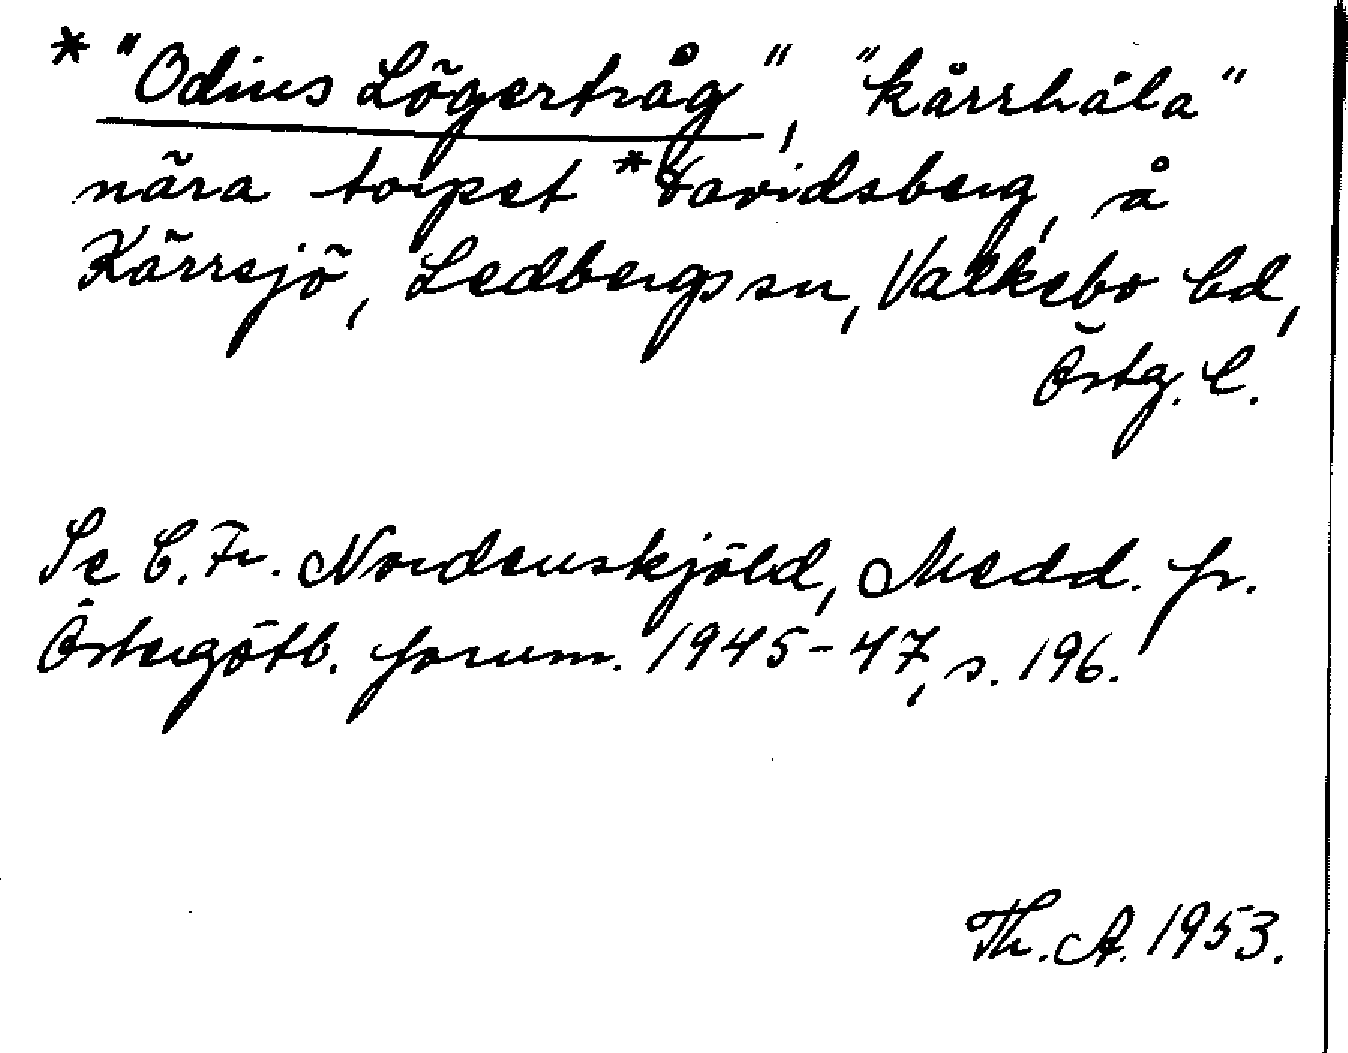 * "Odins Lögertråg", "kärrhåla"
nära torpet *Davidsberg, å
Kärrsjö, Ledbergs sn, Valkebo hd,
Östg. l.
Se C. Fr. Nordenskjöld, Medd. fr.
Östergötl. fornm. 1945-47, s. 196.
Th. A. 1953.